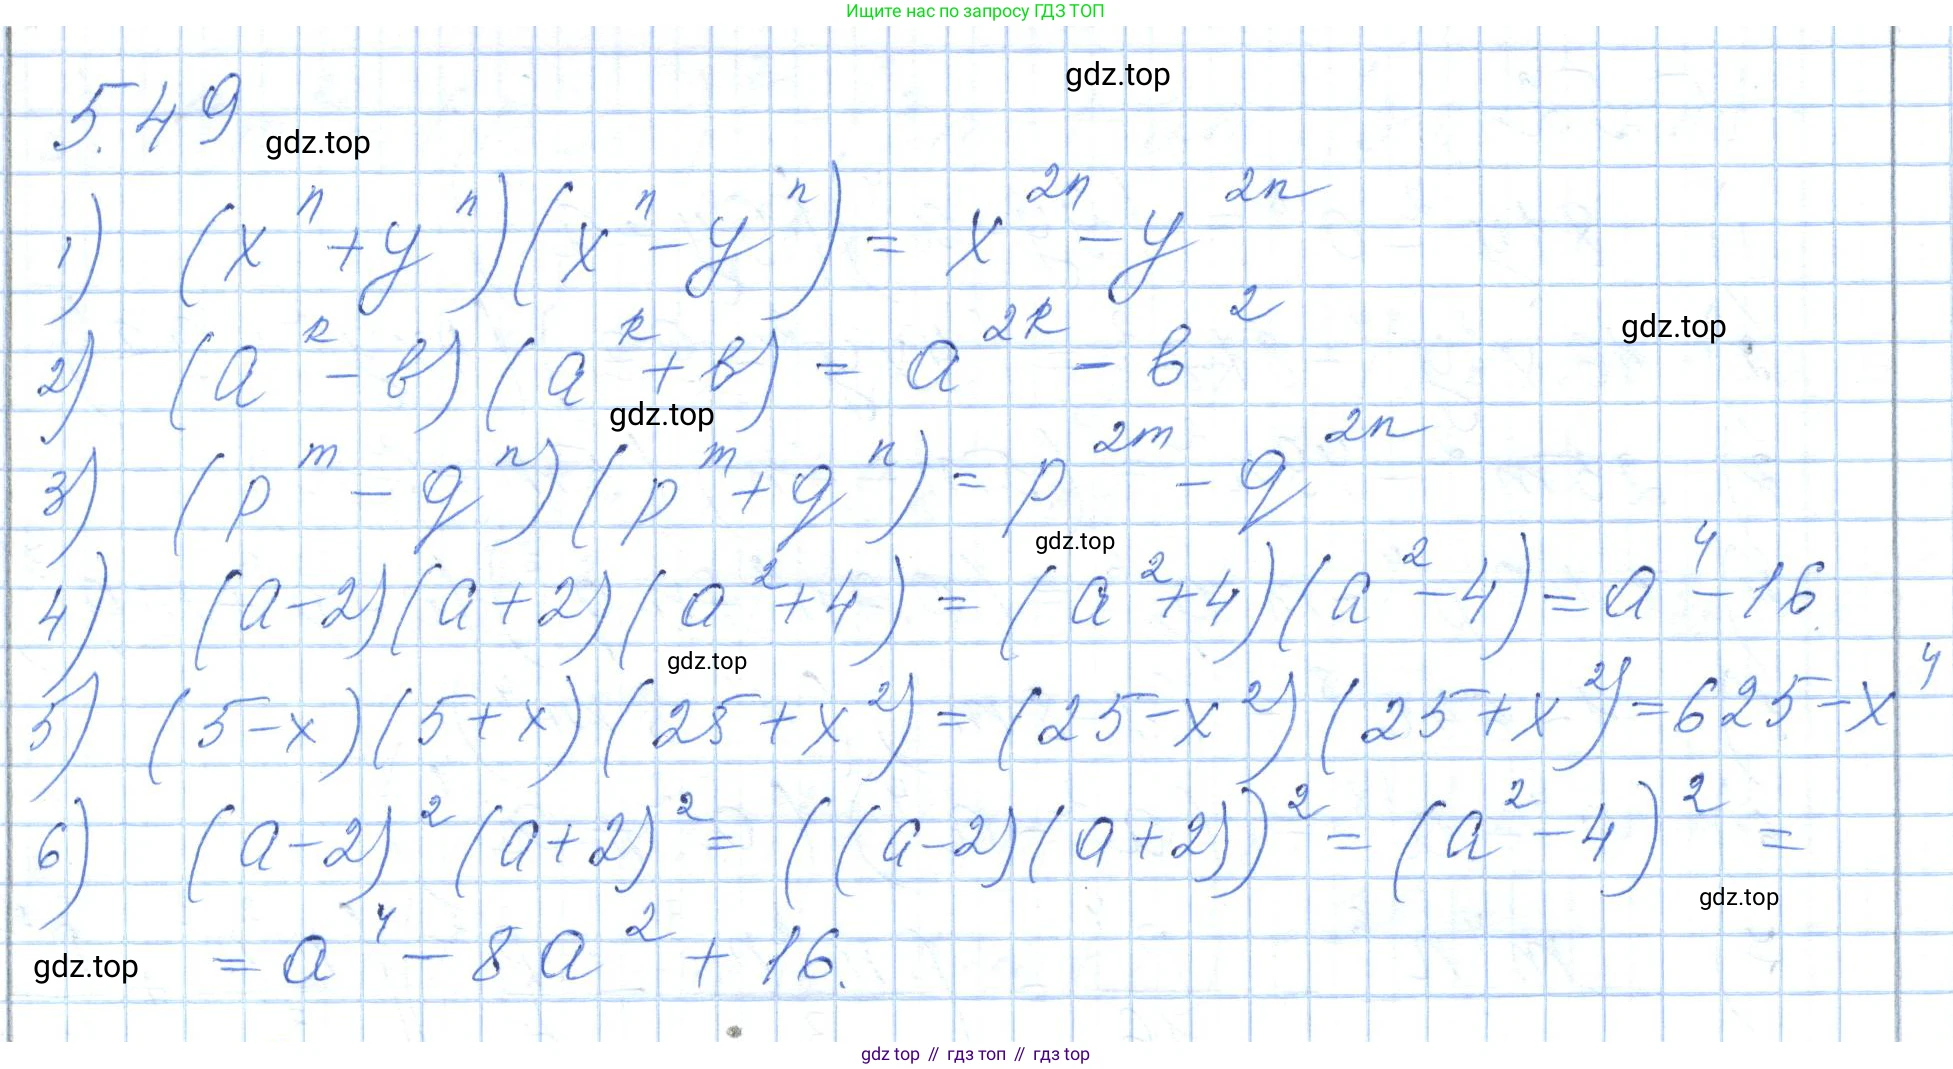 Ищите нас по запросу ГДЗ ТОП
gdz.top
5.49
gdz.top
1) (xⁿ + yⁿ)(xⁿ - yⁿ) = x²ⁿ - y²ⁿ
gdz.top
2) (aᵏ - b)(aᵏ + b) = a²ᵏ - b²
gdz.top
3) (pᵐ - qⁿ)(pᵐ + qⁿ) = p²ᵐ - q²ⁿ
gdz.top
4) (a - 2)(a + 2)(a² + 4) = (a² + 4)(a² - 4) = a⁴ - 16.
gdz.top
5) (5 - x)(5 + x)(25 + x²) = (25 - x²)(25 + x²) = 625 - x⁴
6) (a - 2)²(a + 2)² = ((a - 2)(a + 2))² = (a² - 4)² =
gdz.top
gdz.top
= a⁴ - 8a² + 16.
gdz top // гдз топ // гдз top